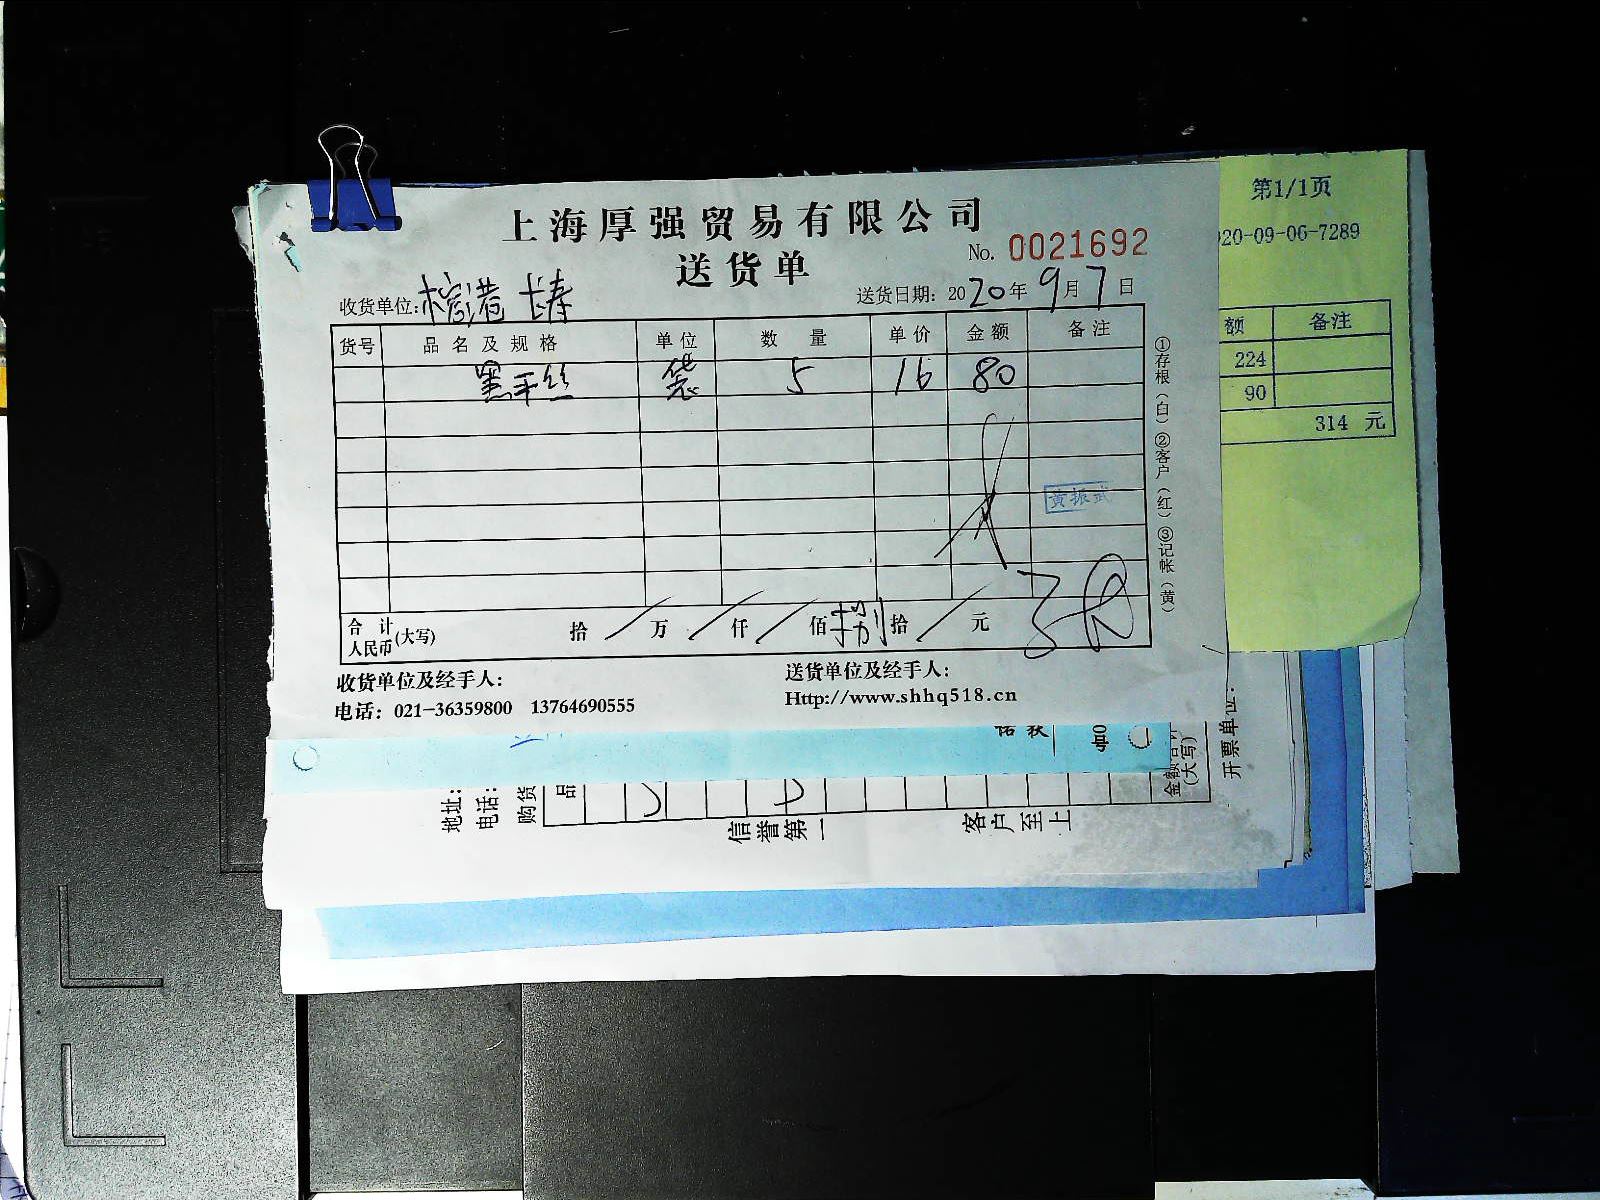 上海厚强贸易有限公司
送货单
No. 0021692
收货单位: 港 长寿
送货日期: 2020年9月7日
货号 品名及规格 单位 数量 单价 金额 备注
黑手丝 袋 5 16 80
黄振武
①存根(白)②客户(红)③记帐(黄)
合计人民币(大写) 拾/万/仟/佰捌拾/元
收货单位及经手人:
送货单位及经手人:
电话: 021-36359800 13764690555
Http://www.shhq518.cn
第1/1页
20-09-06-7289
额 备注
224
90
314 元
地址:
电话:
购货
品
信誉第一
客户至上
(大写)
开票单位: